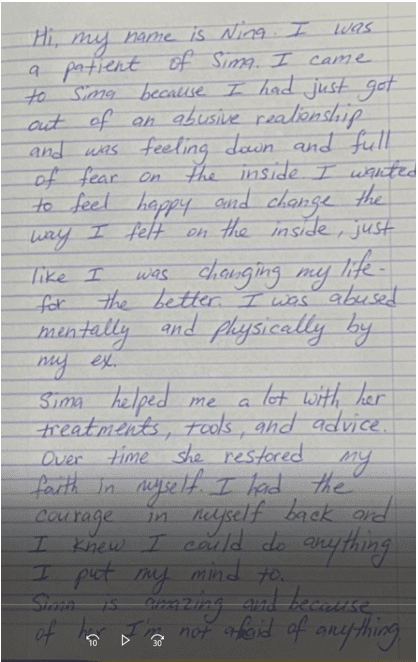 Hi, my name is Nina. I was
a patient of Sima. I came
to Sima because I had just got
out of an abusive realionship
and was feeling down and full
of fear on the inside I wanted
to feel happy and change the
way I felt on the inside, just
like I was changing my life -
for the better. I was abused
mentally and physically by
my ex.
Sima helped me a lot with her
treatments, tools, and advice.
Over time she restored my
faith in myself. I had the
courage in myself back and
I knew I could do anything
I put my mind to.
Sima is amazing and because
of her I'm not afraid of anything
10 30